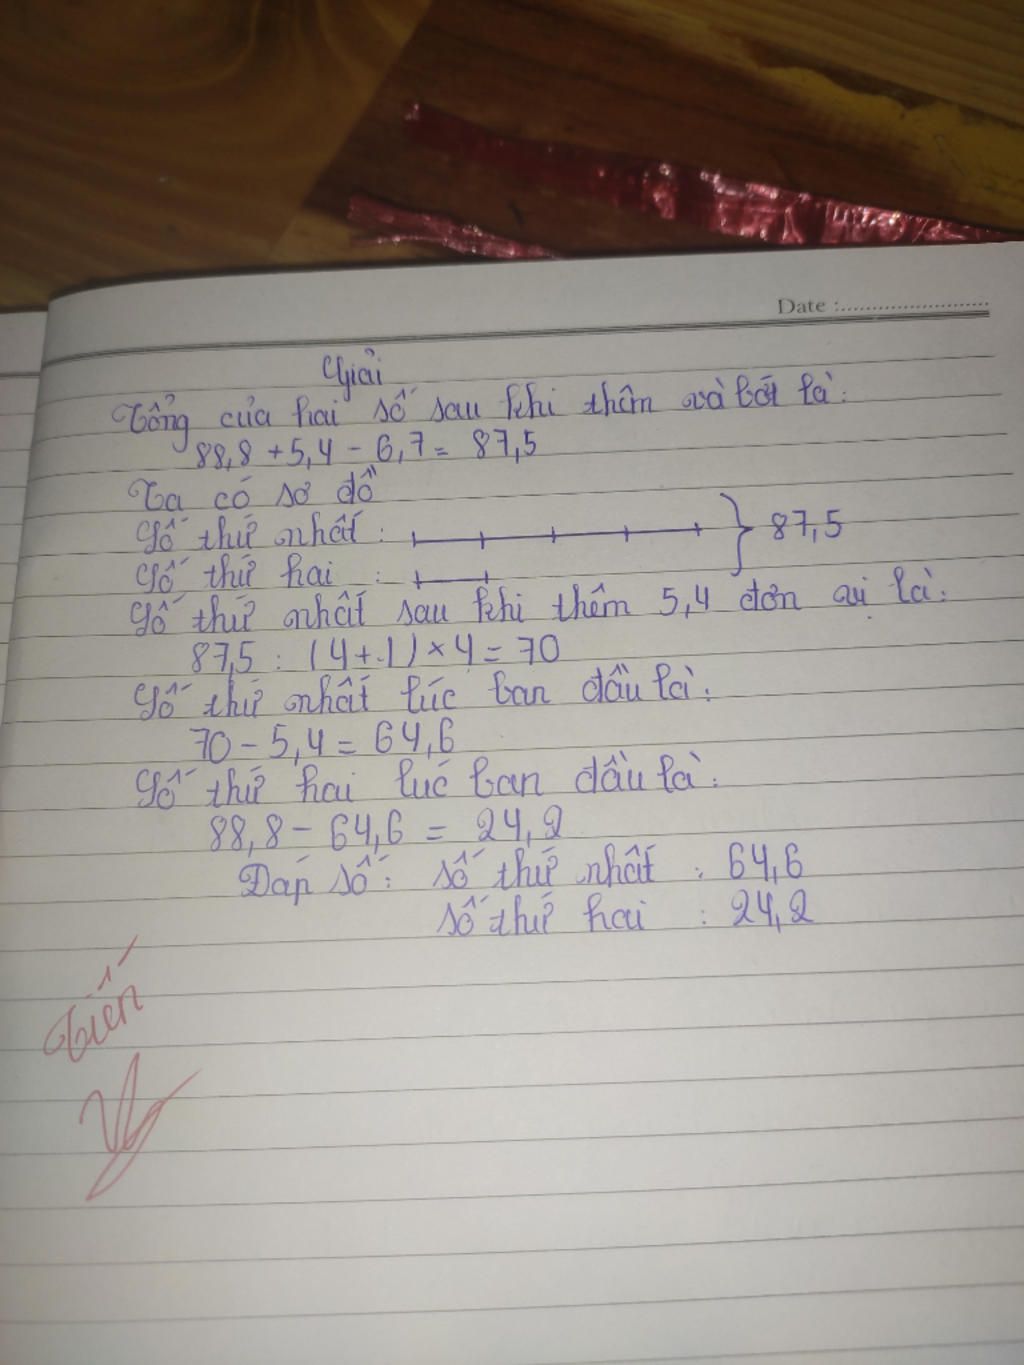 Date :
Giải
Tổng của hai số sau khi thêm và bớt là:
88,8 + 5,4 - 6,7 = 87,5
Ta có sơ đồ
Số thứ nhất : 87,5
Số thứ hai :
Số thứ nhất sau khi thêm 5,4 đơn vị là:
87,5 : (4 + 1) × 4 = 70
Số thứ nhất lúc ban đầu là:
70 - 5,4 = 64,6
Số thứ hai lúc ban đầu là:
88,8 - 64,6 = 24,2
Đáp số : số thứ nhất : 64,6
số thứ hai : 24,2
Tiến